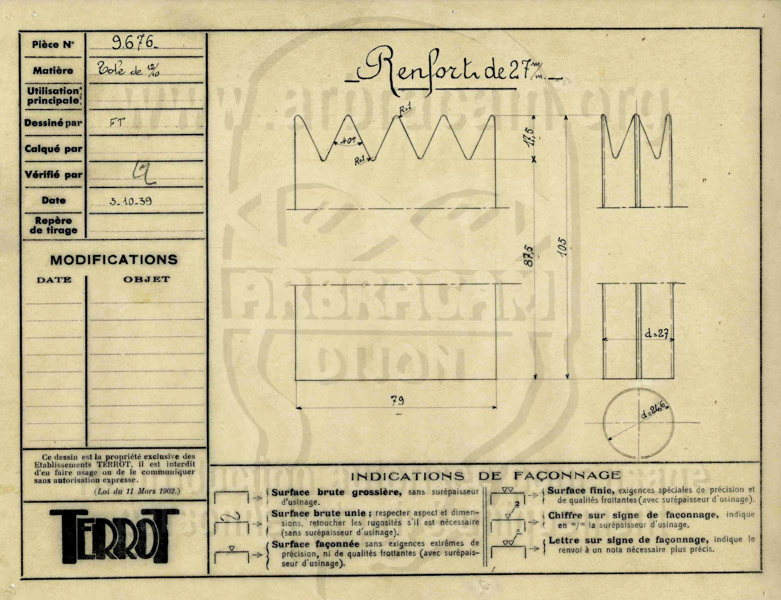 Pièce N° 9.676_
Matière Tôle de 12/10
Utilisation principale
Dessiné par FT
Calqué par
Vérifié par
Date 3-10-39
Repère de tirage
MODIFICATIONS
DATE OBJET
Ce dessin est la propriété exclusive des
Etablissements TERROT, il est interdit
d'en faire usage ou de le communiquer
sans autorisation expresse.
(Loi du 11 Mars 1902.)
TERROT
_Renfort de 27 m/m._
R=1
40°
R=1
17,5
87,5
105
79
d=27
d=24,6
ARBRACAM
DIJON
INDICATIONS DE FAÇONNAGE
Surface brute grossière, sans surépaisseur
d'usinage.
Surface brute unie ; respecter aspect et dimen-
sions, retoucher les rugosités s'il est nécessaire
(sans surépaisseur d'usinage).
Surface façonnée sans exigences extrêmes de
précision, ni de qualités frottantes (avec surépais-
seur d'usinage).
Surface finie, exigences spéciales de précision et
de qualités frottantes (avec surépaisseur d'usinage).
Chiffre sur signe de façonnage, indique
en m/m la surépaisseur d'usinage.
Lettre sur signe de façonnage, indique le
renvoi à un nota nécessaire plus précis.